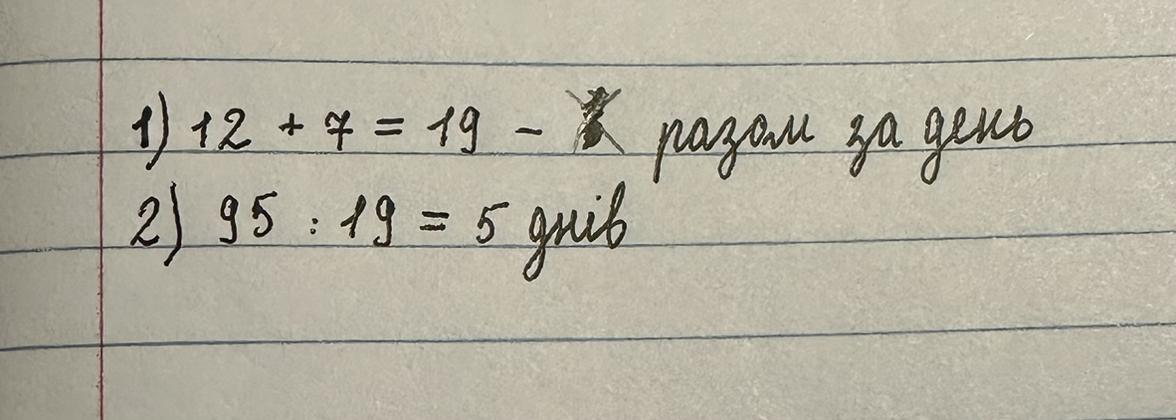 1) 12 + 7 = 19 - разом за день
2) 95 : 19 = 5 днів